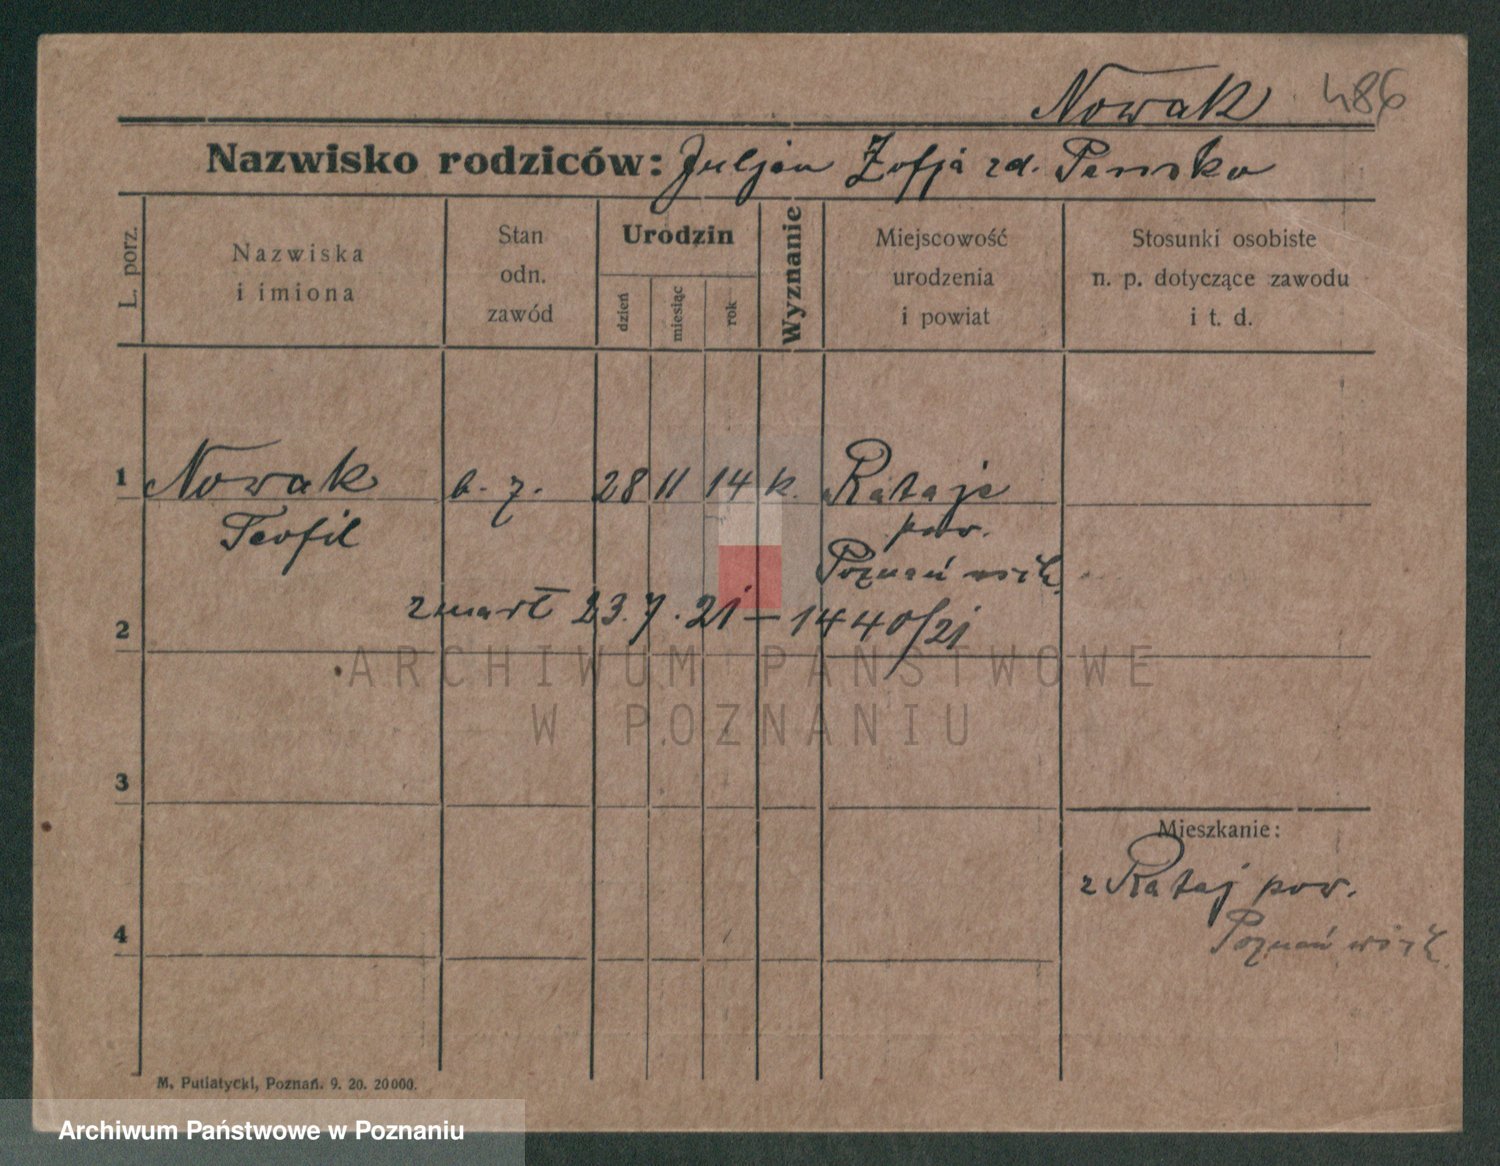 Nowak 486
Nazwisko rodziców: Juljan Zofja zd.
L. porz.
Nazwiska
i imiona
Stan
odn.
zawód
Urodzin
dzień
miesiąc
rok
Wyznanie
Miejscowość
urodzenia
i powiat
Stosunki osobiste
n. p. dotyczące zawodu
i t. d.
1 Nowak b. z. 28 11 14 k. Rataje
Teofil pow.
Poznań wsch.
zmarł 23.7.21 — 1440/21
2
ARCHIWUM PAŃSTWOWE
W POZNANIU
3
Mieszkanie:
z Rataj pow.
Poznań wsch.
4
M. Putiatycki, Poznań. 9. 20. 20000.
Archiwum Państwowe w Poznaniu